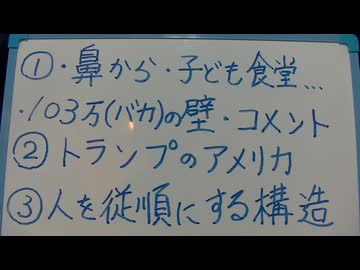 ①・鼻から・子ども食堂…
・103万(バカ)の壁・コメント
②トランプのアメリカ
③人を従順にする構造